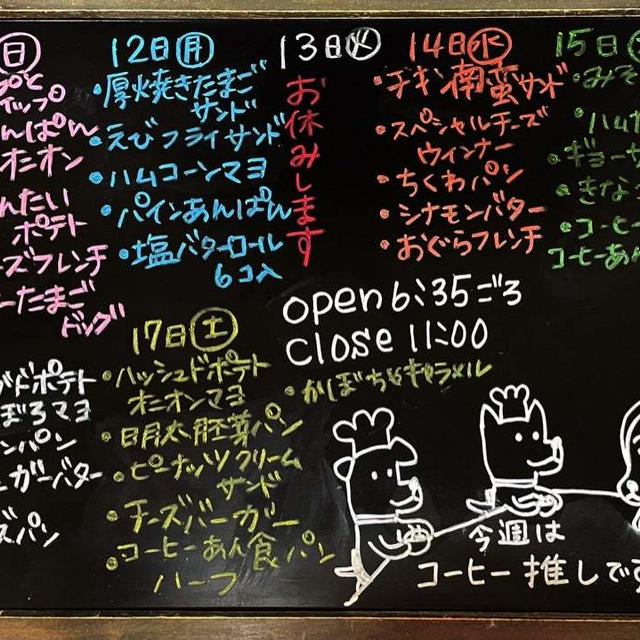 日
んぱん
オニオン
んたい
ポテト
ズフレンチ
ーたまご
ドッグ
12日 月
・厚焼きたまご
サンド
・えびフライサンド
・ハムコーンマヨ
・パインあんぱん
・塩バターロール
6コ入
13日 火
お休みします
14日 水
・チキン南蛮サンド
・スペシャルチーズ
ウィンナー
・ちくわパン
・シナモンバター
・おぐらフレンチ
15日
・みそ
・ハムカ
・ギョーザ
・きな
・コーヒー
コーヒーあん
open 6:35ごろ
close 11:00
ドポテト
ぼろマヨ
ンパン
ガーバター
ズパン
17日 土
・ハッシュドポテト
オニオンマヨ
・明太チーズパン
・ピーナッツクリーム
サンド
・チーズバーガー
・コーヒーあん食パン
ハーフ
・かぼちゃキャラメル
今週は
コーヒー推しです